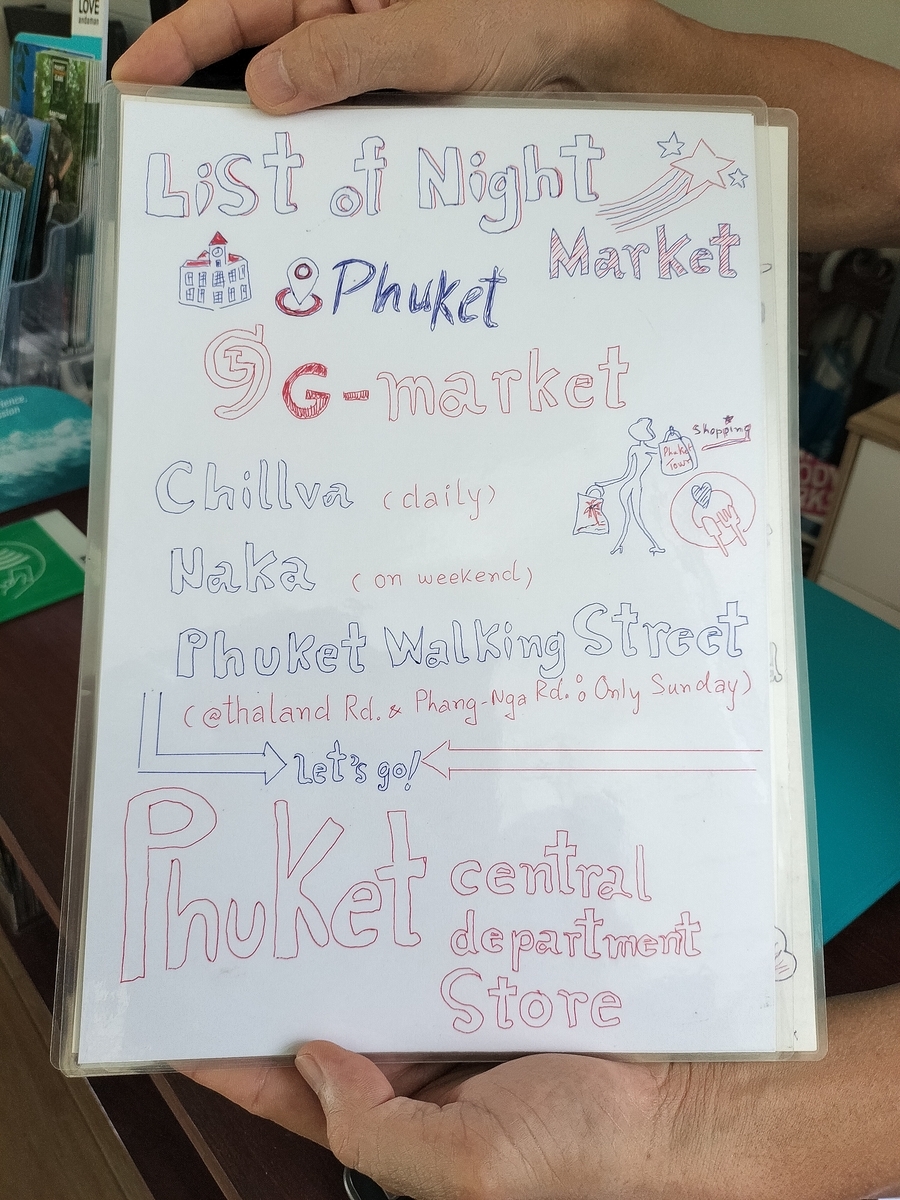 LOVE
andaman
List of Night
Market
Phuket
G-market
Shopping
Phuket
Town
Chillva (daily)
Naka (on weekend)
Phuket Walking Street
(@thaland Rd. & Phang-Nga Rd. : Only Sunday)
Let's go!
Phuket
central
department
Store